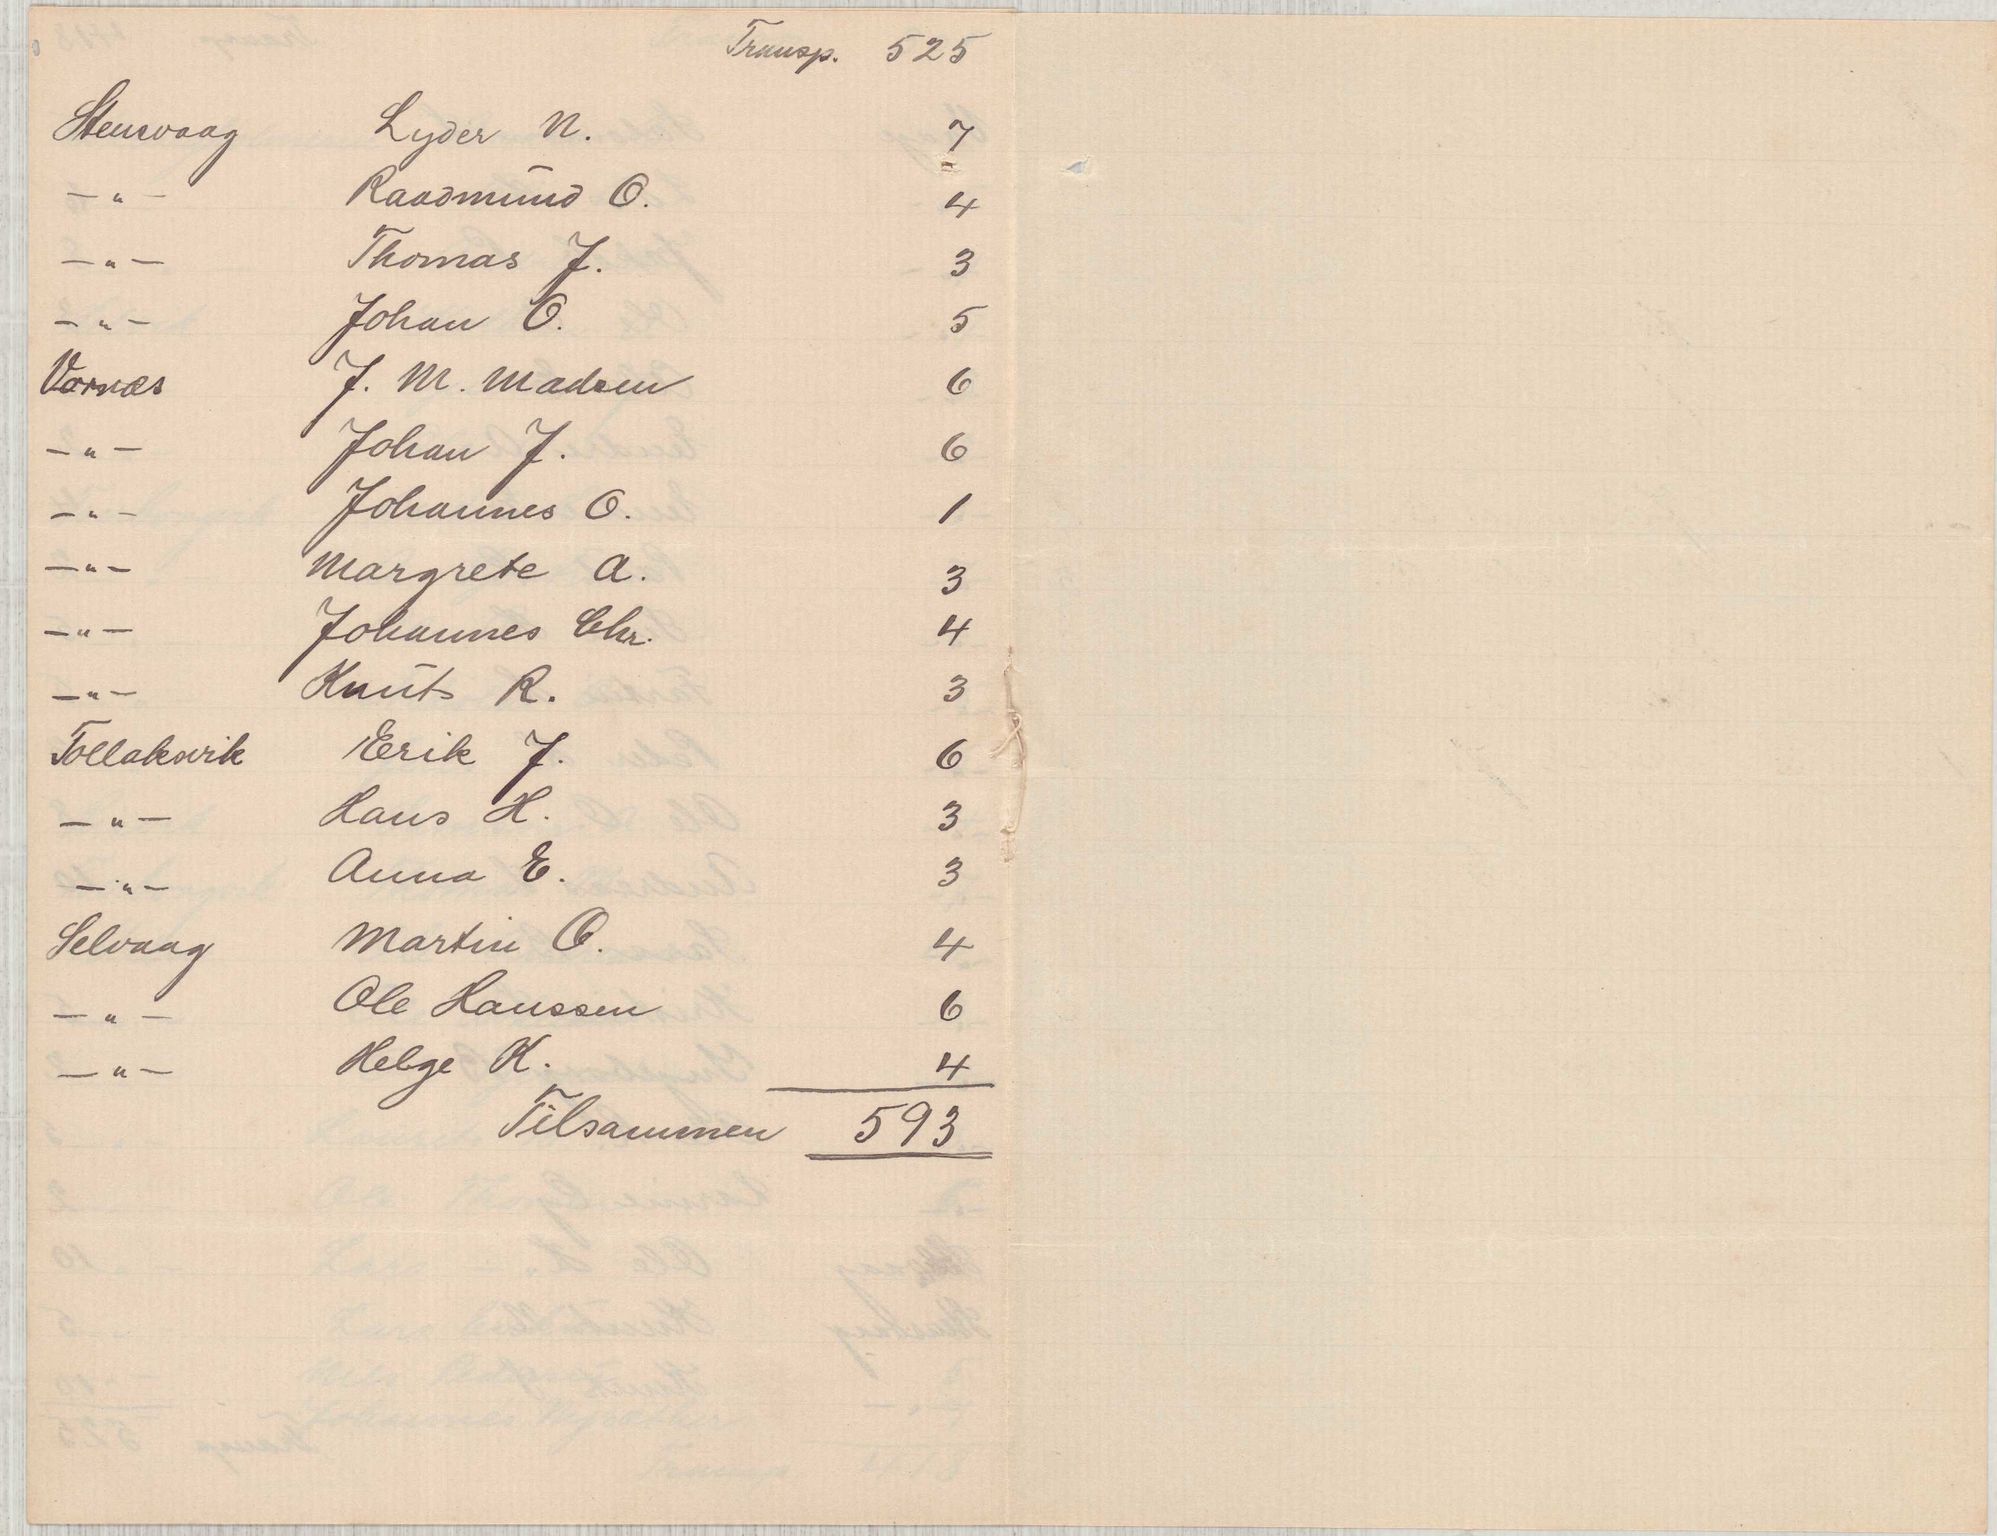 Transp. 525
Stensvaag Lyder N. 7
—"— Raadmund O. 4
—"— Thomas J. 3
—"— Johan O. 5
Vornes J. M. Madsen 6
—"— Johan J. 6
—"— Johannes O. 1
—"— Margrete A. 3
—"— Johannes Chr. 4
—"— Knut R. 3
Tollaksvik Erik J. 6
—"— Hans H. 3
—"— Anna E. 3
Selvaag Martin O. 4
—"— Ole Hanssen 6
—"— Helge K. 4
Tilsammen 593